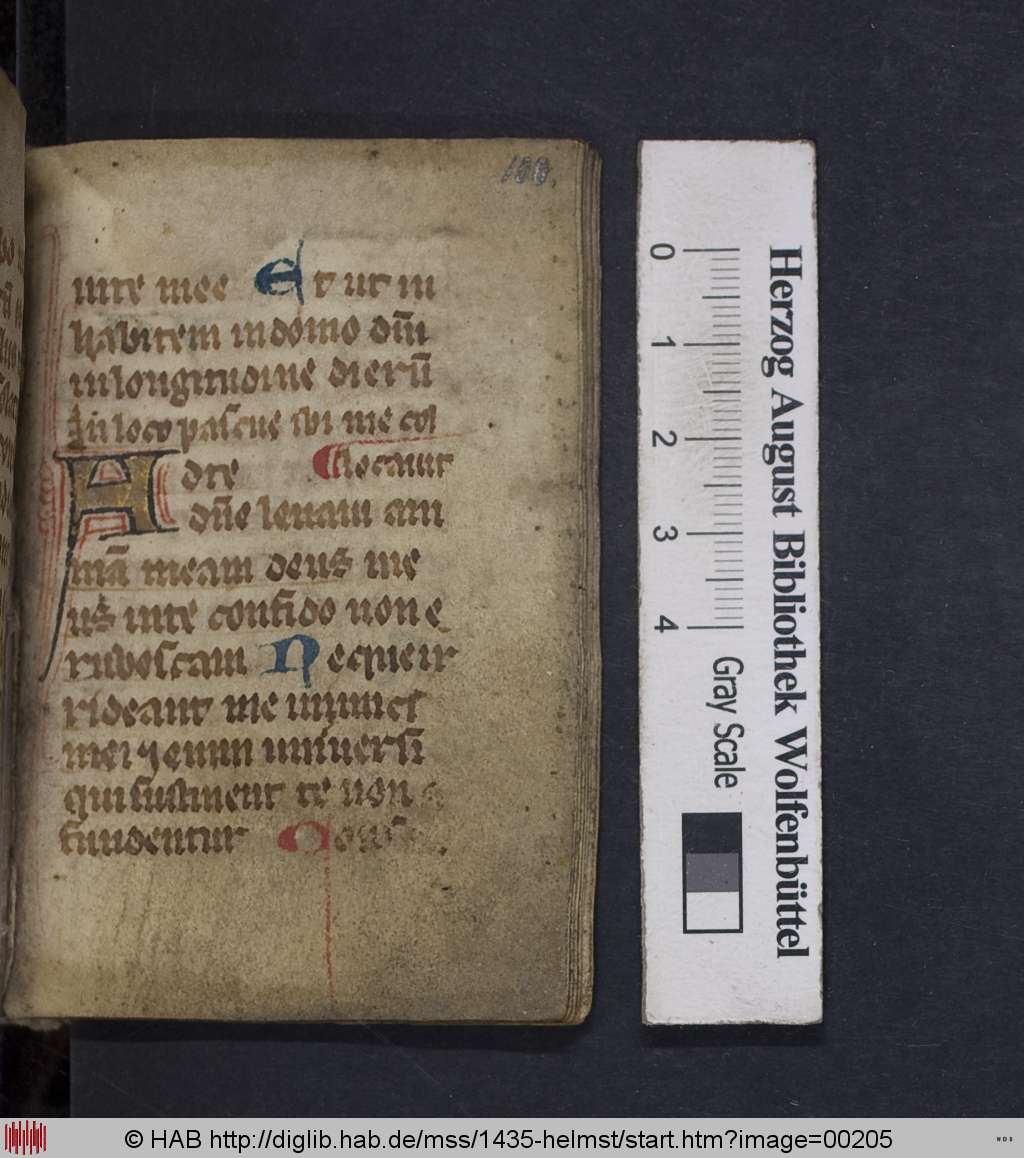 100.
uite mee Et ut in
habitem in domo dn̄i
in longitudine dierū
In loco pascue ibi me col
Ad te locauit
dn̄e leuaui ani
mā meam deus me
us in te confido non e
rubescam Neque ir
rideant me inimici
mei ⁊ enim uniuersi
qui sustinent te non
fundentur
0
1
2
3
4
Gray Scale
Herzog August Bibliothek Wolfenbüttel
© HAB http://diglib.hab.de/mss/1435-helmst/start.htm?image=00205